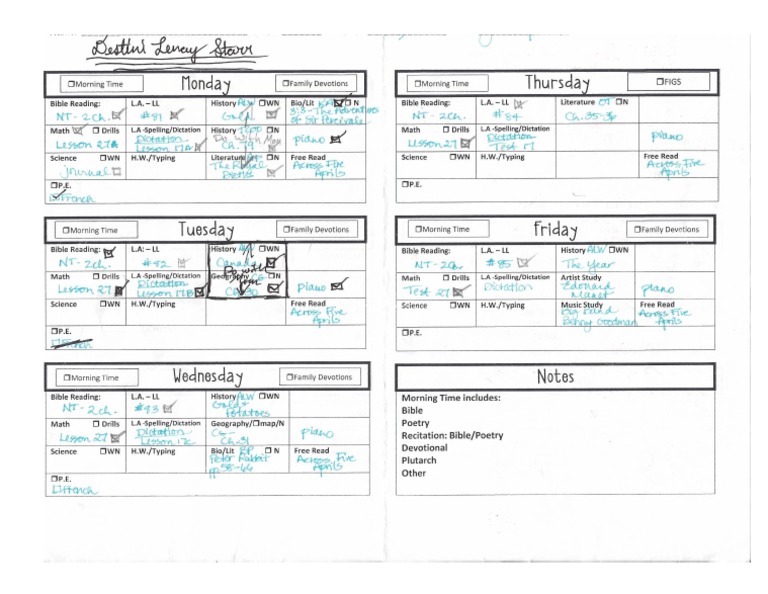 Destini Lenay Starr
Monday
☐Morning Time
☐Family Devotions
Bible Reading:
NT - 2 ch.
L.A. – LL
#81
History ALW ☐WN
Gold
Bio/Lit ☐N
3:3 - The Adventures
of Sir Percivale
Math ☐ Drills
Lesson 27A
L.A-Spelling/Dictation
Dictation
Lesson 17A
History ☐N
Do with Mom
Ch. 19
piano
Science ☐WN
journal
H.W./Typing
Literature ☐N
Free Read
Across Five
Aprils
☐P.E.
☐French
Tuesday
☐Morning Time
☐Family Devotions
Bible Reading:
NT - 2ch.
L.A. – LL
#82
History ALW ☐WN
Canada
Do with
Math ☐ Drills
Lesson 27
L.A-Spelling/Dictation
Dictation
Lesson 17B
Geography CG ☐N
Ch. 30
piano
Science ☐WN
H.W./Typing
Free Read
Across Five
Aprils
☐P.E.
☐French
Wednesday
☐Morning Time
☐Family Devotions
Bible Reading:
NT - 2 ch.
L.A. – LL
#83
History ALW ☐WN
Gold &
Potatoes
Math ☐ Drills
Lesson 27
L.A-Spelling/Dictation
Dictation
Lesson 17C
Geography/☐map/N
CG -
Ch. 31
piano
Science ☐WN
H.W./Typing
Bio/Lit BP ☐ N
Peter Rabbit
pp 58-66
Free Read
Across Five
Aprils
☐P.E.
☐French
Thursday
☐Morning Time
☐FIGS
Bible Reading:
NT - 2ch.
L.A. – LL
#84
Literature OT ☐N
Ch. 35-36
Math ☐ Drills
Lesson 27
L.A-Spelling/Dictation
Dictation
Test 17
piano
Science ☐WN
H.W./Typing
Free Read
Across Five
Aprils
☐P.E.
Friday
☐Morning Time
☐Family Devotions
Bible Reading:
NT - 2ch.
L.A. – LL
#85
History ALW ☐WN
The Year
Math ☐ Drills
Test 27
L.A-Spelling/Dictation
Dictation
Artist Study
Edouard
Manet
piano
Science ☐WN
H.W./Typing
Music Study
Big Band
Benny Goodman
Free Read
Across Five
Aprils
☐P.E.
Notes
Morning Time includes:
Bible
Poetry
Recitation: Bible/Poetry
Devotional
Plutarch
Other